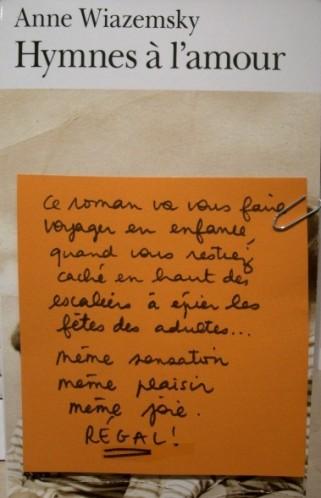 Anne Wiazemsky
Hymnes à l'amour
Ce roman va vous faire
voyager en enfance,
quand vous restiez
caché en haut des
escaliers à épier les
fêtes des adultes...
même sensation
même plaisir
même joie.
RÉGAL!